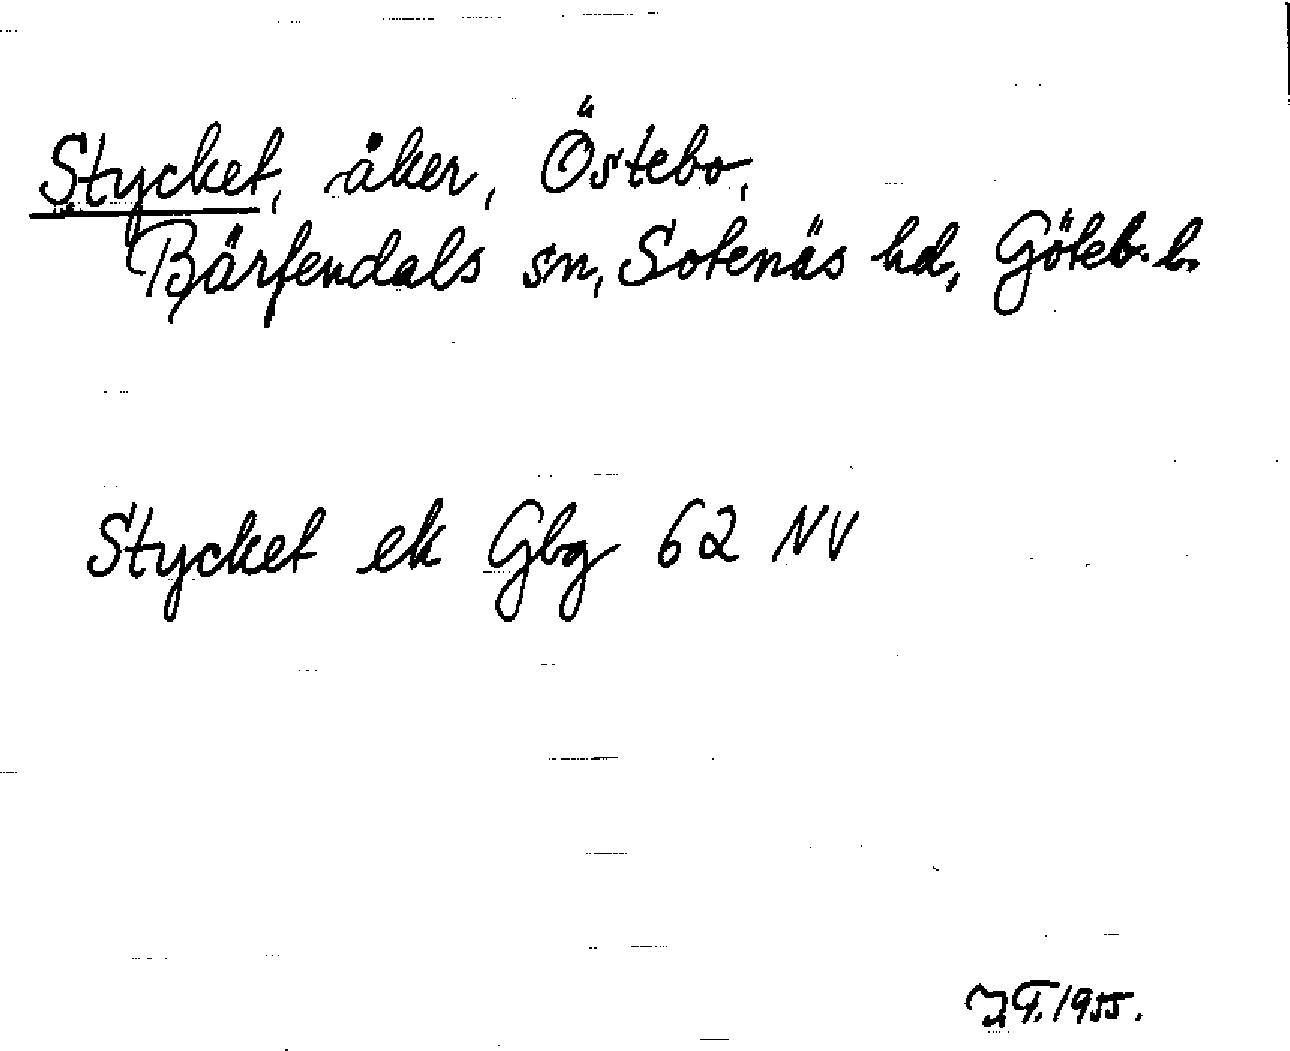 Stycket, åker, Östebo,
Bärfendals sn, Sotenäs hd, Göteb. l.
Stycket ek Gbg 62 NV
1955.